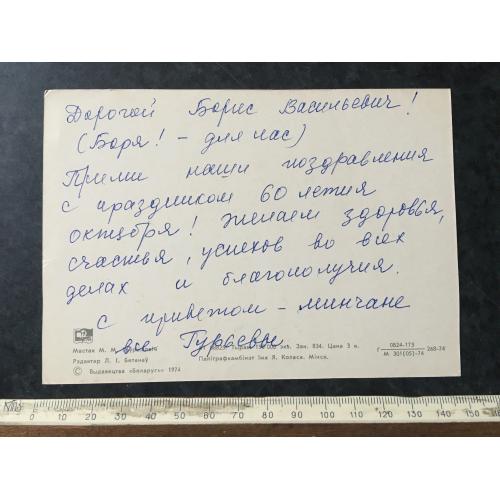 Дорогой Борис Васильевич!
(Боря! - для нас)
Прими наши поздравления
с праздником 60 летия
октября! Желаем здоровья,
счастья, успехов во всех
делах и благополучия.
с приветом - минчане
все Гурьевы
Мастак М. М.
Рэдактар Л. І. Бетанаў
© Выдавецтва «Беларусь» 1974
000 экз. Зак. 834. Цана 3 к.
Паліграфкамбінат імя Я. Коласа. Мінск.
0824-173
М 301(05)-74
268-74
0 10 20 30 40 50 60 70 80 90 100 110 120 130 140 150